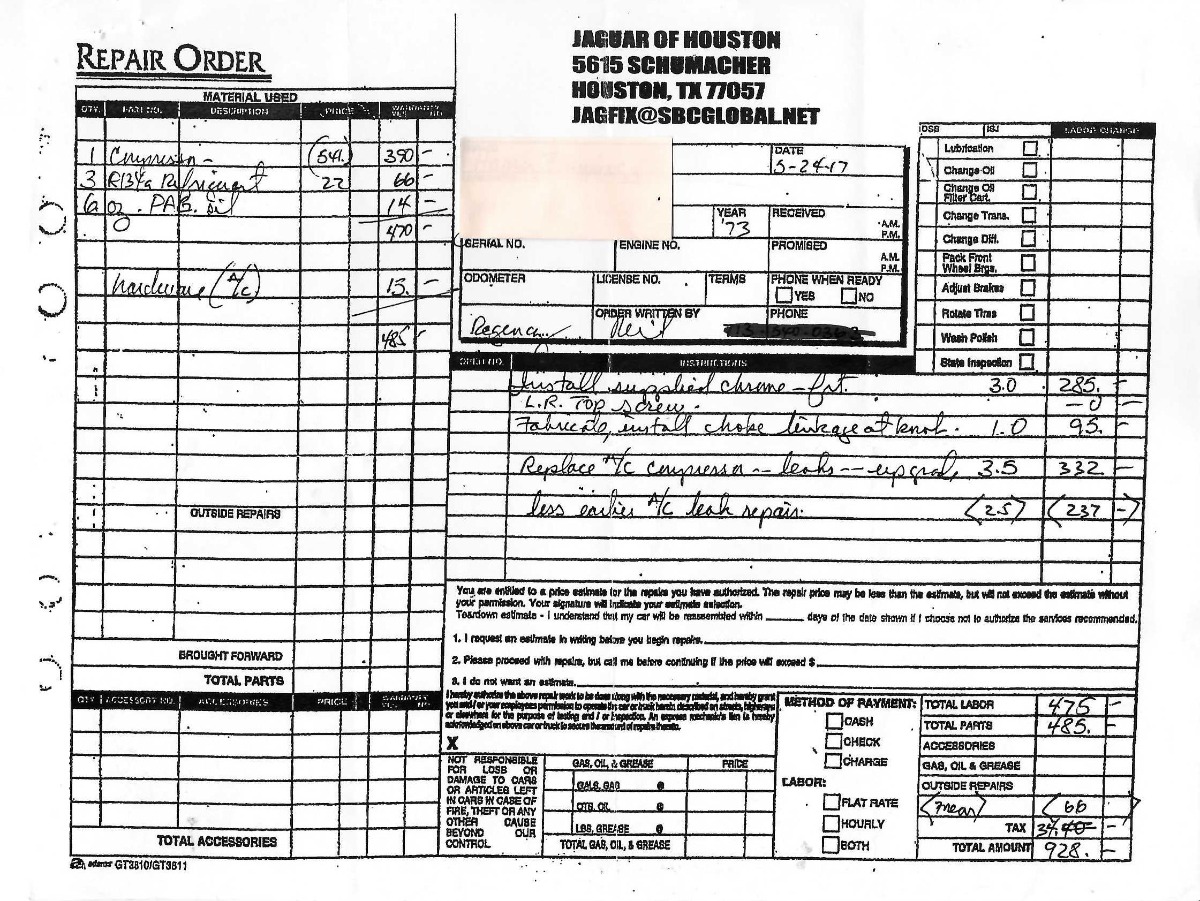 REPAIR ORDER
JAGUAR OF HOUSTON
5615 SCHUMACHER
HOUSTON, TX 77057
JAGFIX@SBCGLOBAL.NET
MATERIAL USED
QTY. PART NO. DESCRIPTION PRICE WARRANTY
1 Compressor - (541.) 390 -
3 R134a Refrigerant 22 66 -
6 oz. PAG. oil 14 -
470 -
hardware (A/c) 15. -
485 -
OUTSIDE REPAIRS
BROUGHT FORWARD
TOTAL PARTS
QTY ACCESSORY NO. ACCESSORIES PRICE WARRANTY
TOTAL ACCESSORIES
adams GT3810/GT3811
DATE
5-24-17
YEAR
'73
RECEIVED
A.M.
P.M.
SERIAL NO. ENGINE NO. PROMISED
A.M.
P.M.
ODOMETER LICENSE NO. TERMS PHONE WHEN READY
YES NO
ORDER WRITTEN BY PHONE
Regency Neil
LABOR CHARGE
Lubrication
Change Oil
Change Oil
Filter Cart.
Change Trans.
Change Diff.
Pack Front
Wheel Brgs.
Adjust Brakes
Rotate Tires
Wash Polish
State Inspection
OPER NO. INSTRUCTIONS
Install supplied chrome - frt. 3.0 285. -
L.R. Top screw. - 0 -
Fabricate, install choke linkage at knob. 1.0 95. -
Replace A/C compressor -- leaks -- upgrade 3.5 332 -
less earlier A/C leak repair. (2.5) (237 -)
You are entitled to a price estimate for the repairs you have authorized. The repair price may be less than the estimate, but will not exceed the estimate without
your permission. Your signature will indicate your estimate selection.
Teardown estimate - I understand that my car will be reassembled within ______ days of the date shown if I choose not to authorize the services recommended.
1. I request an estimate in writing before you begin repairs.
2. Please proceed with repairs, but call me before continuing if the price will exceed $
3. I do not want an estimate.
I hereby authorize the above repair work to be done along with the necessary material, and hereby grant
you and / or your employees permission to operate the car or truck herein described on streets, highways
or elsewhere for the purpose of testing and / or inspection. An express mechanic's lien is hereby
acknowledged on above car or truck to secure the amount of repairs thereto.
X
NOT RESPONSIBLE
FOR LOSS OR
DAMAGE TO CARS
OR ARTICLES LEFT
IN CARS IN CASE OF
FIRE, THEFT OR ANY
OTHER CAUSE
BEYOND OUR
CONTROL
GAS, OIL, & GREASE PRICE
GALS. GAS @
QTS. OIL @
LBS. GREASE @
TOTAL GAS, OIL, & GREASE
METHOD OF PAYMENT:
CASH
CHECK
CHARGE
LABOR:
FLAT RATE
HOURLY
BOTH
TOTAL LABOR 475 -
TOTAL PARTS 485. -
ACCESSORIES
GAS, OIL & GREASE
OUTSIDE REPAIRS
(66)
TAX 34.40 -
TOTAL AMOUNT 928. -